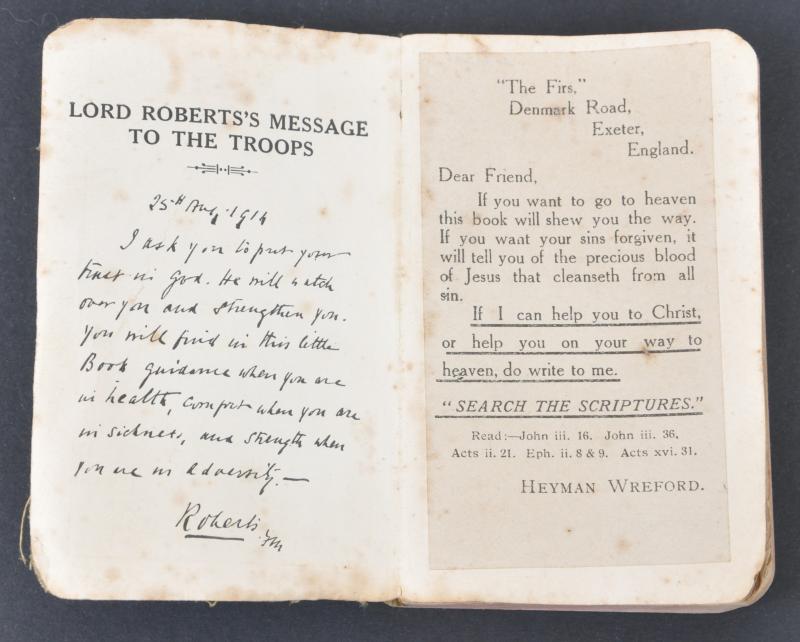 LORD ROBERTS'S MESSAGE
TO THE TROOPS
25th Aug. 1914
I ask you to put your
trust in God. He will watch
over you and strengthen you.
You will find in this little
Book guidance when you are
in health, comfort when you are
in sickness, and strength when
you are in adversity.—
Roberts
FM
"The Firs,"
Denmark Road,
Exeter,
England.
Dear Friend,
If you want to go to heaven
this book will shew you the way.
If you want your sins forgiven, it
will tell you of the precious blood
of Jesus that cleanseth from all
sin.
If I can help you to Christ,
or help you on your way to
heaven, do write to me.
"SEARCH THE SCRIPTURES."
Read:—John iii. 16. John iii. 36.
Acts ii. 21. Eph. ii. 8 & 9. Acts xvi. 31.
HEYMAN WREFORD.